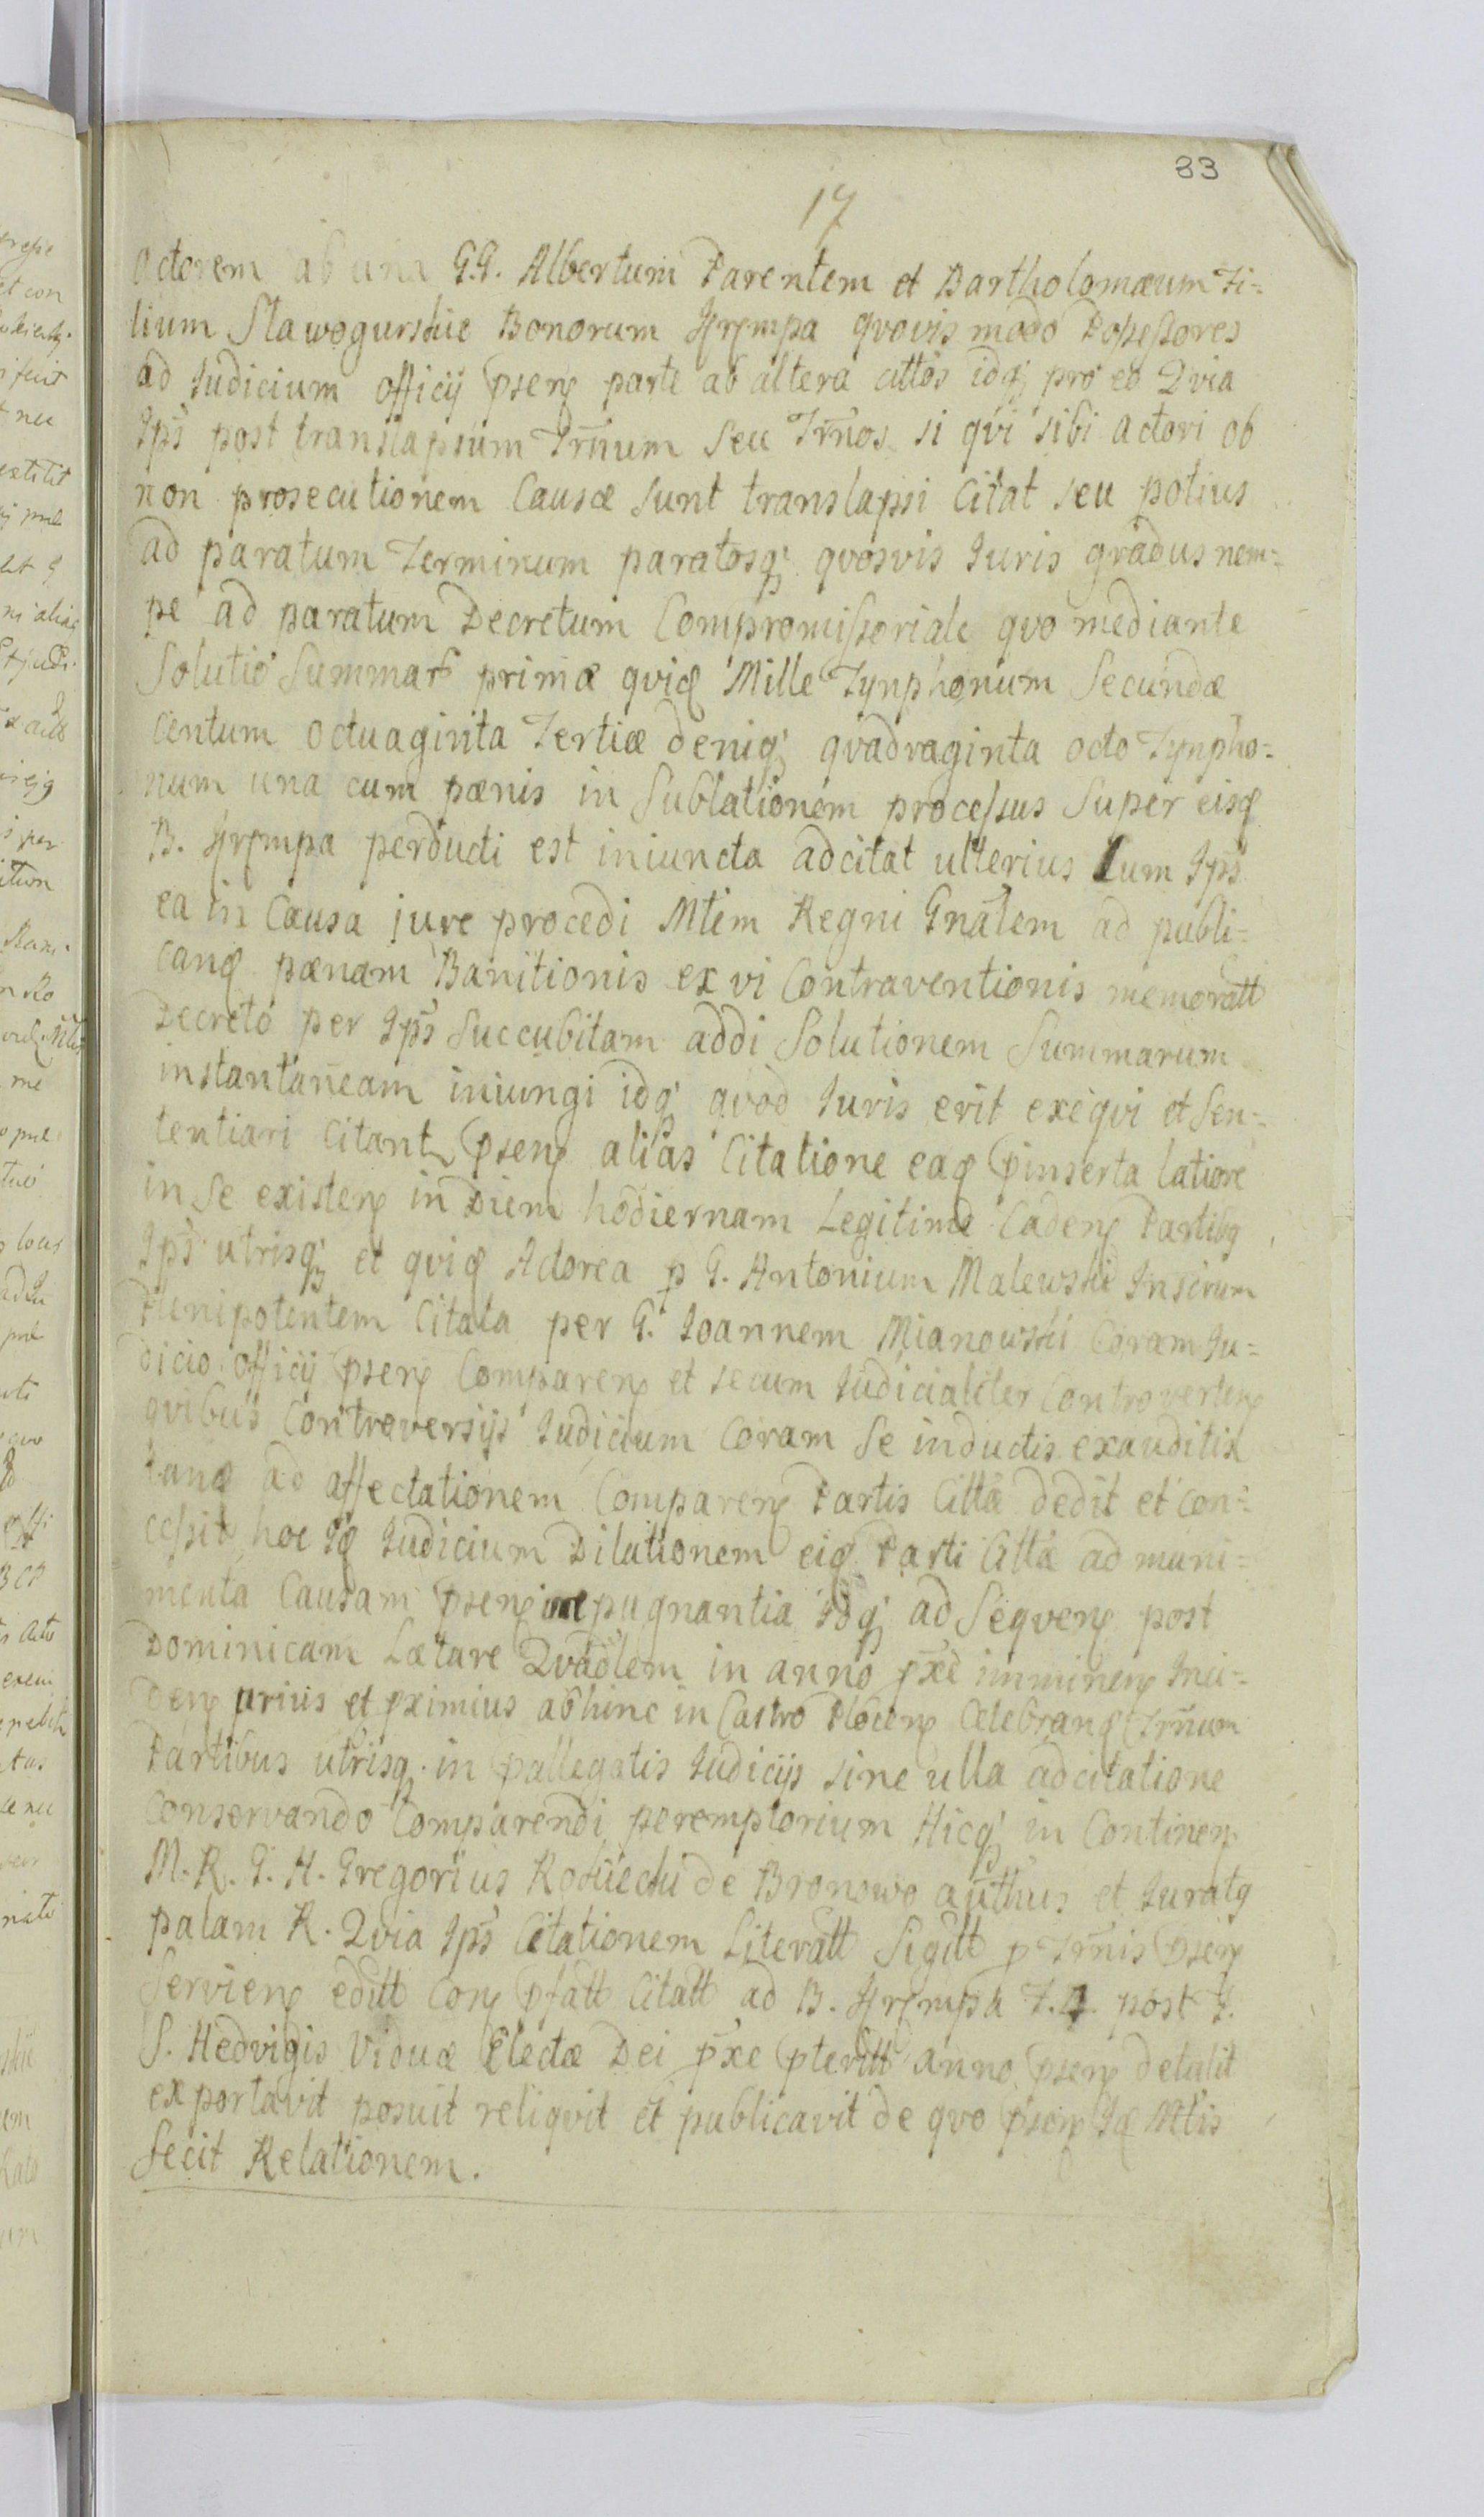 83
17
Actorem ab una G.G. Albertum Parentem et Bartholomæum Fi=
lium Sławogurskie Bonorum Krempa qvovis modo Possessores
ad Judicium officij pseng parte ab altera cittos idq; pro eo Qvia
Ips post translapsum Trnum seu Trnos si qvi sibi Actori ob
non prosecutionem Causæ sunt translapsi Citat seu potius
ad paratum Terminum paratosq; qvosvis Juris gradus nem=
pe ad paratum Decretum Compromissoriale qvo mediante
Solutio Summar primæ qviq Mille Tynphonum Secundæ
Centum octuaginta Tertiæ deniq; qvadraginta octo Tynpho=
num una cum pænis in Sublationem processus super eisq
B. Krempa perducti est iniuncta adcitat ulterius Cum Ips
ea in Causa jure procedi Mtem Regni Gnalem ad publi=
canq pænam Banitionis ex vi Contraventionis memoratt
Decreto per Ips Succubitam addi Solutionem Summarum
instantaneam iniungi idq; qvod Juris erit exeqvi et Sen=
tentiari Citant pseng alias Citatione eaq pinserta latiore
in Se existeng in Diem hodiernam Legitime Cadeng Partibq
Ips utrisq; et qviq Actorea p G. Antonium Malewski Inscrum
Plenipotentem Citata per G. Joannem Mianowski Coram Ju=
dicio officij pseng Compareng et secum Judicialiter Controverteng
qvibus Controversijs Judicium Coram Se inductis exauditis
tanq ad affectationem Compareng Partis Cittæ dedit et con=
cessit hoc Iq Judicium Dilationem eiq Parti Cittæ ad muni=
menta Causam pseng repugnantia Idq; ad Seqveng post
Dominicam Lætare Qvadlem in anno pxe immineng Inci=
deng prius et pximius abhinc in Castro Ploceng Celebranq Trnum
Partibus utrisq. in pallegatis Judicijs sine ulla adcitatione
Conservando Comparendi peremptorium Hicq; in Contineng
M. R. G. H. Gregorius de Bronowo authus et Juratq
palam R. Qvia Ips Citationem Literatt Sigitt p Trnis pseng
Servieng editt Cong pfatt Citatt ad B. Krempa F. 4. post F.
S. Hedvigis Viduæ Electæ Dei pxe pteritt anno pseng detulit
exportavit posuit reliqvit et publicavit de qvo pseng Iq Mtis
fecit Relationem.